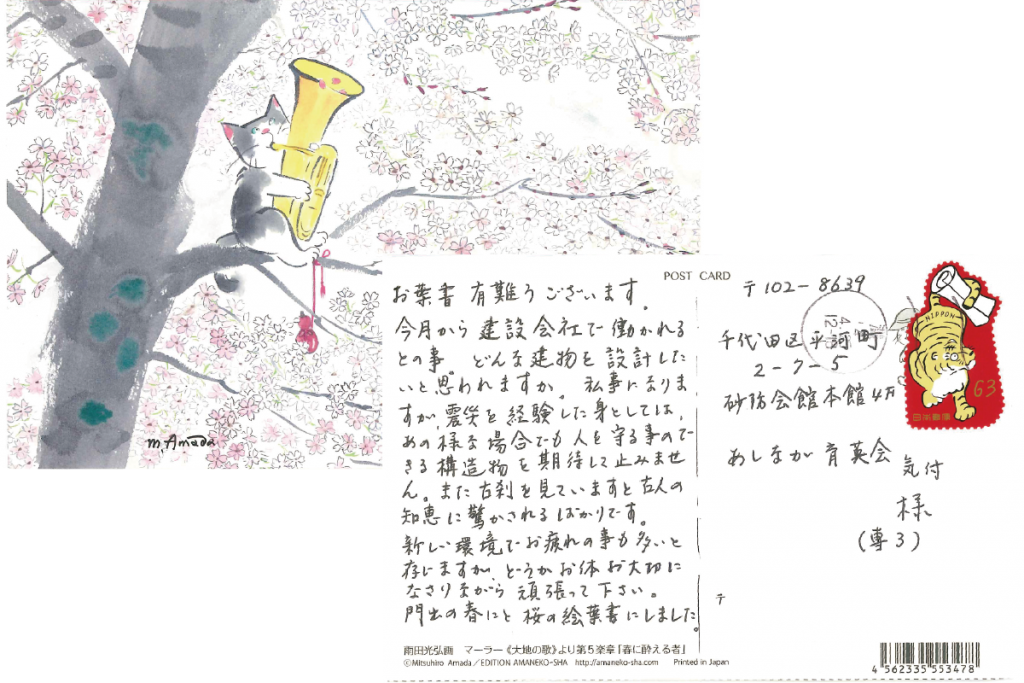 M. Amada
POST CARD
お葉書 有難うございます。
今月から 建設会社で働かれる
との事。どんな建物を設計した
いと思われますか。私事になりま
すが、震災を経験した身としては、
あの様な場合でも人を守る事ので
きる構造物を期待して止みませ
ん。また古刹を見ていますと古人の
知恵に驚かされるばかりです。
新しい環境でお疲れの事も多いと
存じますが、どうかお体お大切に
なさりながら頑張って下さい。
門出の春にと桜の絵葉書にしました。
雨田光弘画 マーラー《大地の歌》より第5楽章「春に酔える者」
©Mitsuhiro Amada／EDITION AMANEKO-SHA http://amaneko-sha.com Printed in Japan
〒102-8639
千代田区平河町
2-7-5
砂防会館本館4F
あしなが育英会
気付
様
(専3)
〒
NIPPON
63
日本郵便
4 562335 553478